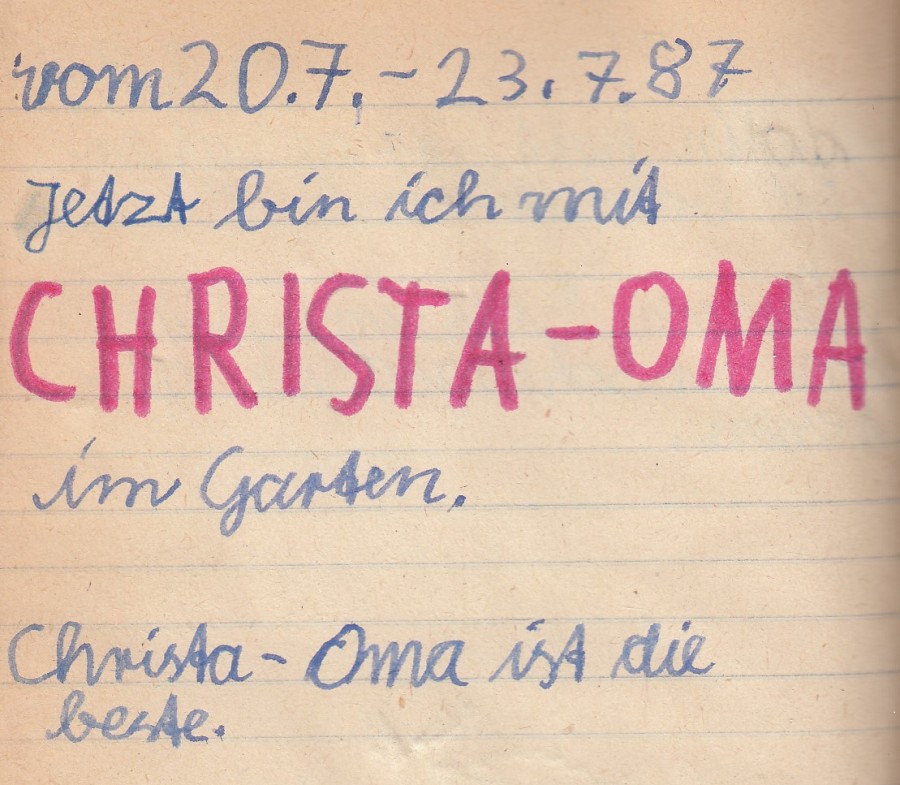 vom 20.7.-23.7.87
Jetzt bin ich mit
CHRISTA-OMA
im Garten.
Christa-Oma ist die
beste.